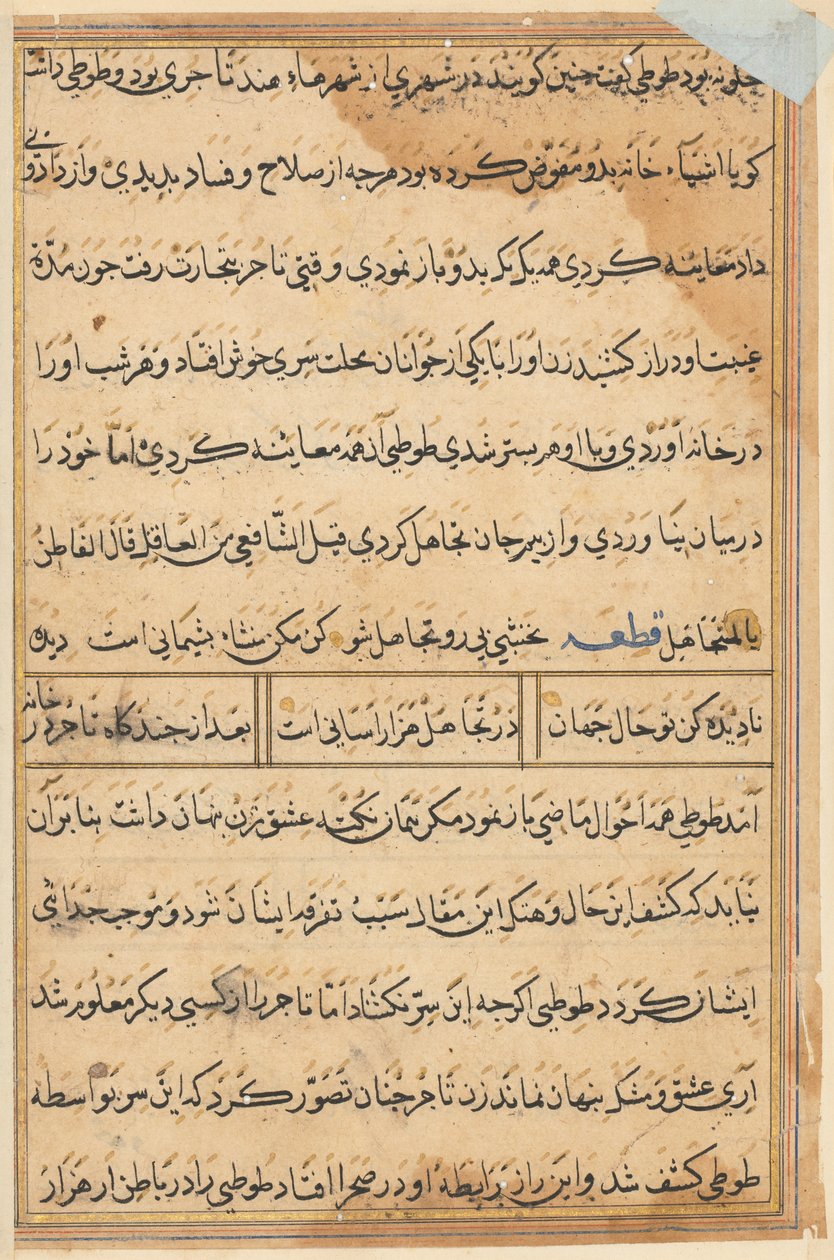 چلونه بود طوطي کفت چنین کویند در شهري از شهرهاء هند تاجري بود و طوطي داشت
کویا اشیاء خانه بدو مفوّض کرده بود هرچه از صلاح و فساد بدیدي و از داد و بي
داد معاینه کردي همه یک یک بدو باز نمودي وقتي تاجر بتجارت رفت جون مدّة
غیبت او دراز کشید زن او را با یکي از جوانان محلت سري خوش افتاد و هر شب او را
در خانه اوردي و با او هم بستر شدي طوطي آن همه معاینه کردي امّا خود را
درمیان نیاوردي و از بیم جان تجاهل کردي قیل الشّافعي من العاقل قال الفاطن
بالمتجاهل قطعه نخشبي رو تجاهل شو کن مکن منشاء بشیماني است دیده
نادیده کن تو حال جهان در تجاهل هزار اساني است بعد از جندکاه تاجر در خانه
آمد طوطي همه احوال ماضي باز نمود مکر همان نکته عشق زن بنهان داشت بنا بر آن
نباید که کشف این حال و هتک این مقال سبب تفرقه ایشان شود و موجب جدائي
ایشان کردد طوطي اکرجه این سرّ نکشاد امّا تاجر را از کسي دیکر معلوم شد
اري عشق و مشک بنهان نماند زن تاجر جنان تصوّر کرد که این سر بواسطه
طوطي کشف شد و این راز برابطه او در صحرا افتاد طوطي را در باطن از هزار